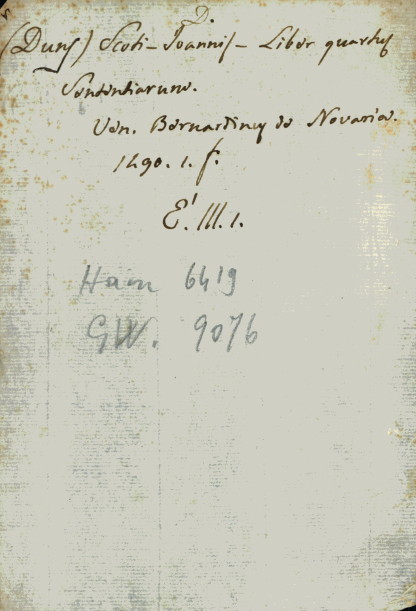 D.
(Duns) Scoti - Joannis - Liber quartus
Sententiarum.
Ven. Bernardinus de Novaria.
1490. 1. f.
E'. III. 1.
Ham 6419
GW. 9076